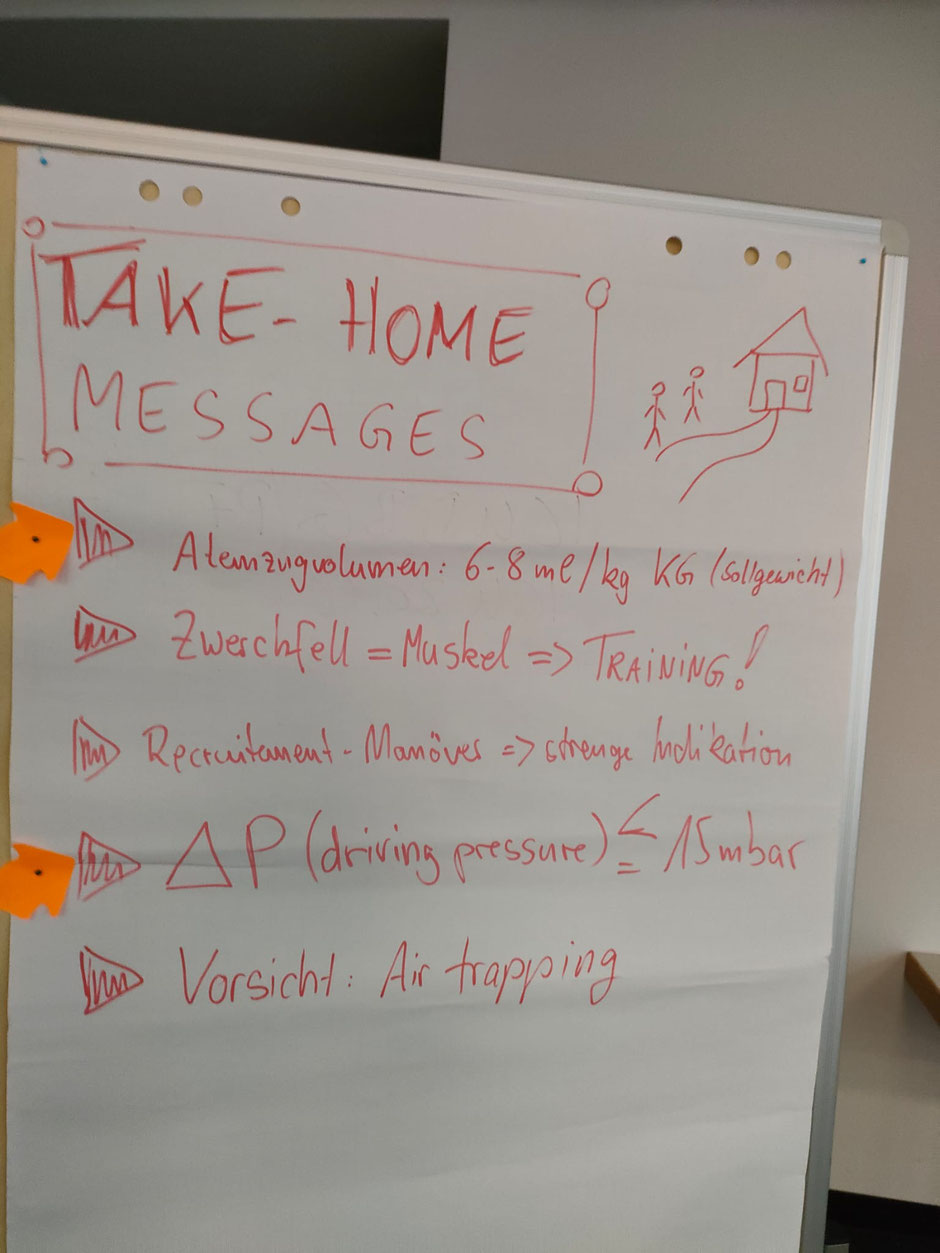 TAKE- HOME
MESSAGES
Atemzugvolumen: 6-8 ml/kg KG (Sollgewicht)
Zwerchfell = Muskel => TRAINING!
Recruitament-Manöver => strenge Indikation
ΔP (driving pressure) ≤ 15 mbar
Vorsicht: Air trapping